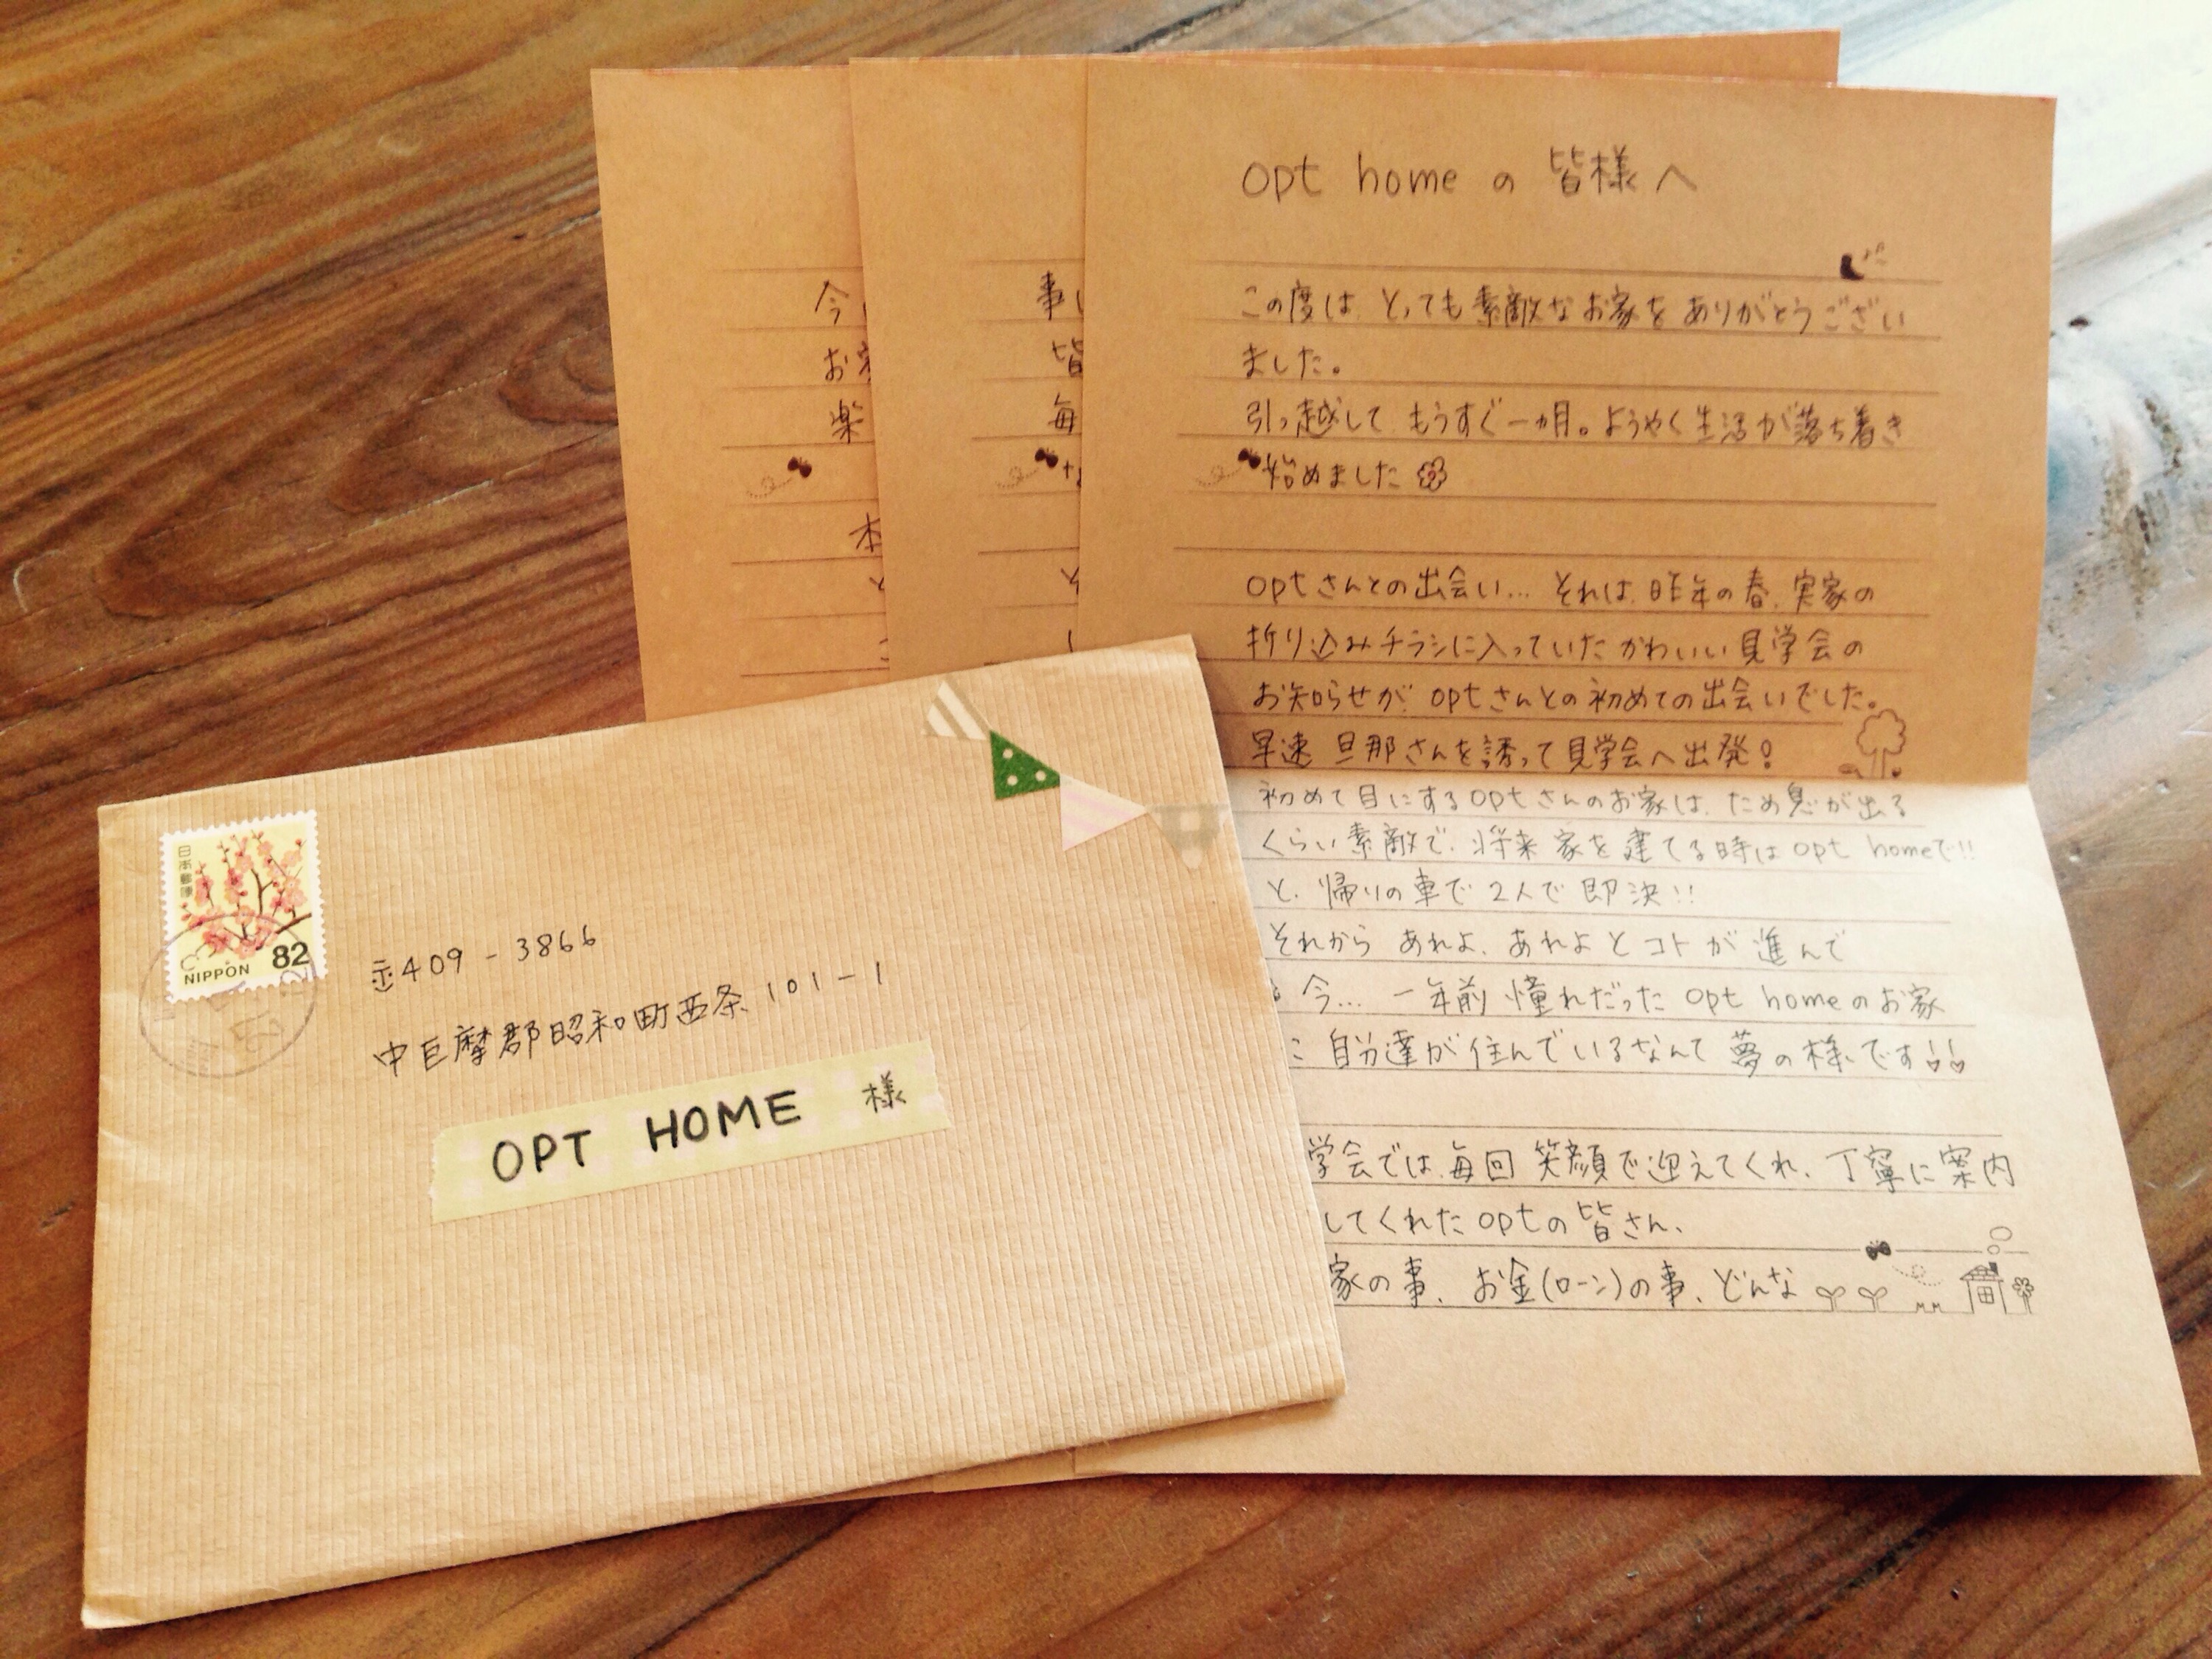 opt home の 皆様へ
この度は とっても素敵なお家を ありがとうござい
ました。
引っ越して もうすぐ一ヵ月。ようやく生活が落ち着き
始めました
optさんとの出会い… それは、昨年の春、実家の
折り込みチラシに入っていた かわいい見学会の
お知らせが optさんとの初めての出会いでした。
早速 旦那さんを誘って見学会へ出発!
初めて目にするoptさんのお家は、ため息が出る
くらい素敵で、将来 家を建てる時は opt homeで!!
と、帰りの車で 2人で 即決!!
それから あれよ、あれよ と コト が 進んで
今… 一年前 憧れだった opt homeのお家
自分達が住んでいるなんて 夢の様です!!
学会では、毎回 笑顔で迎えてくれ、丁寧に案内
してくれた optの皆さん、
家の事、お金(ローン)の事、どんな
事
皆
毎
今
お
楽
本
日本郵便
82
NIPPON
〒409-3866
中巨摩郡昭和町西条101-1
OPT HOME 様